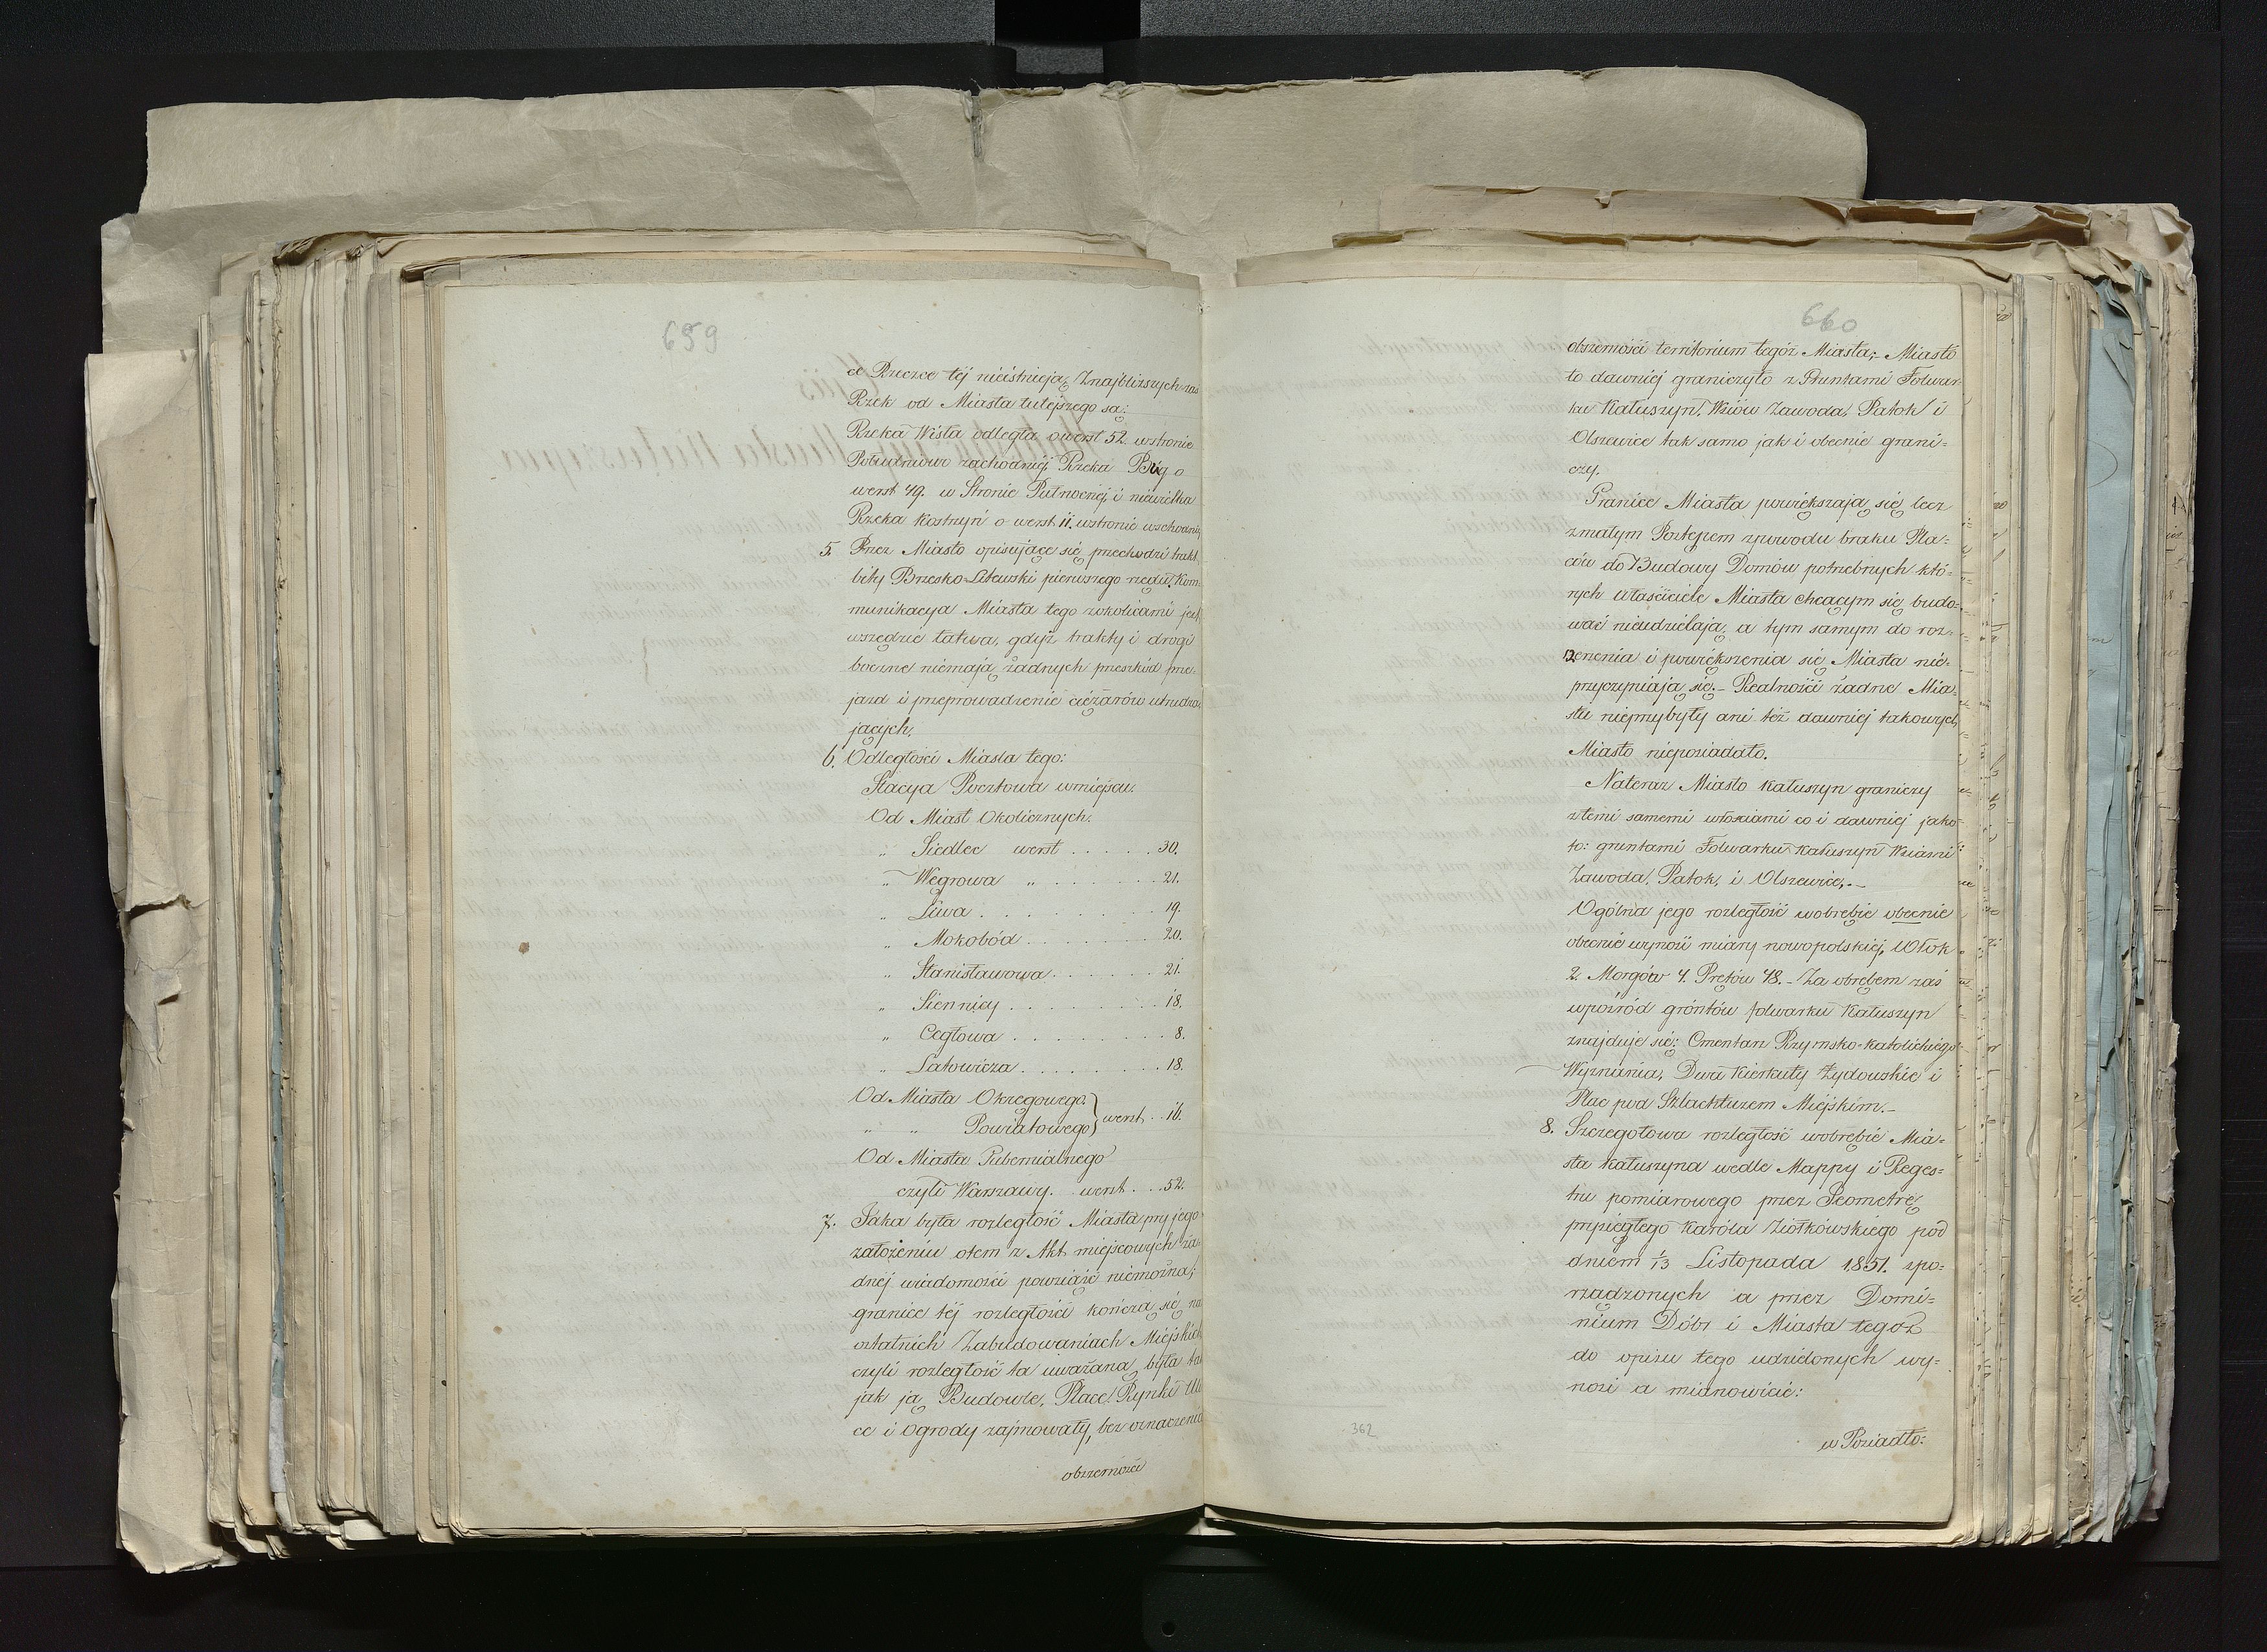 659
ce Rzeczce téj nieistnieją, Znajbliższych zaś
Rzek od Miasta tutéjszego są:
Rzeka Wisła odległa o werst 52. w stronie
Południowo zachodniéj, Rzeka Bug o
werst 49. w Stronie Pułnocnéj, i niewielka
Rzeka Kostrzyń o werst 11. w stronie wschodnié,
5. Przez Miasto opisujące się przechodzi trakt
bity Brzesko-Litewski pierwszego rzędu. Kom-
munikacya Miasta tego z okolicami jest
wszędzie łatwa, gdyż trakty i drogi
boczne niemają żadnych przeszkód prze-
jazd i przeprowadzenie ciężarów utrudza-
jących.
6. Odległości Miasta tego:
Stacya Pocztowa w miejscu.
Od Miast Okolicznych.
„ Siedlec werst . . . . . 30.
„ Węgrowa „ . . . . . . 21.
„ Liwa . . . . . . . . . 19.
„ Mokobód . . . . . . . 20.
„ Stanisławowa . . . . . . 21.
„ Siennicy . . . . . . . . 18.
„ Cegłowa . . . . . . . . 8.
„ Latowicza . . . . . . . . 18.
Od Miasta Okręgowego
„ „ Powiatowego } werst . . 16.
Od Miasta Gubernialnego
czyli Warszawy. werst . . . 52.
7. Jaka była rozległość Miasta przy jego
założeniu otem z Akt miejscowych ża-
dnéj wiadomości powziąść niemożna;
granice téj rozległości kończą się na
ostatnich Zabudowaniach Miejskich
czyli rozległość ta uważana była ta
jak ją Budowle, Place, Rynki Uli
ce i Ogrody zajmowały, bez oznaczenia
obszerności
660
obszerności territorium tegóż Miasta; - Miasto
to dawniej graniczyło z Gruntami Folwar-
ku Kałuszyn, Wsiów Zawoda, Patok i
Olszewice tak samo jak i obecnie grani=
czy.
Granice Miasta powiększają się lecz
z małym Postępem z powodu braku Pla=
ców do Budowy Domów potrzebnych któ=
rych Właściciele Miasta chcącym się budo=
wać nieudzielają, a tym samym do roz=
szerzenia i powiększenia się Miasta nie=
przyczyniają się. - Realności żadne Mia=
stu nieprzybyły ani też dawniej takowych
Miasto nieposiadało.
Nateraz Miasto Kałuszyn graniczy
z temi samemi włościami co i dawniej jako=
to: gruntami Folwarku Kałuszyn Wsiami
Zawoda, Patok, i Olszewice. -
Ogólna jego rozległość w obrębie obecnie
obecnie wynosi miary nowopolskiej, Włók
2. Morgów 4. Prętów 48. - Za obrębem zaś
wpośród gróntów folwarku Kałuszyn
znajduje się: Cmentarz Rzymsko-Katolickiego
Wyznania, Dwa Kierkuty Żydowskie i
Plac pod Szlachtuzem Miejskim. -
8. Szczegółowa rozległość w obrębie Mia=
sta Kałuszyna wedle Mappy i Reges=
tru pomiarowego przez Geometrę
przysięgłego Karola Ziółkówskiego pod
dniem 1/13 Listopada 1851. spo=
rządzonych a przez Domi=
nium Dóbr i Miasta tegoż
do opisu tego udzielonych wy=
nosi a mianowicie:
w Posiadło:
362